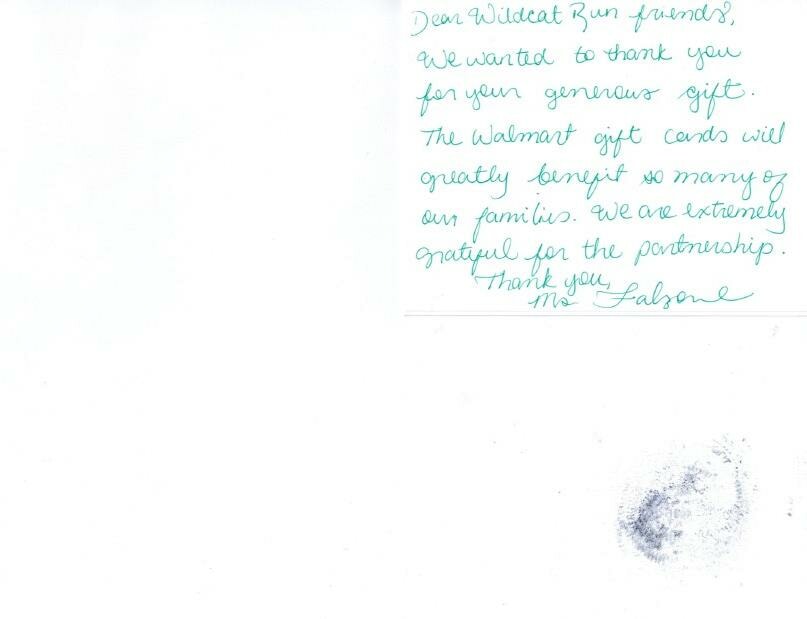 Dear Wildcat Run friends,
We wanted to thank you
for your generous gift.
The Walmart gift cards will
greatly benefit so many of
our families. We are extremely
grateful for the partnership.
Thank you,
Ms Falsone